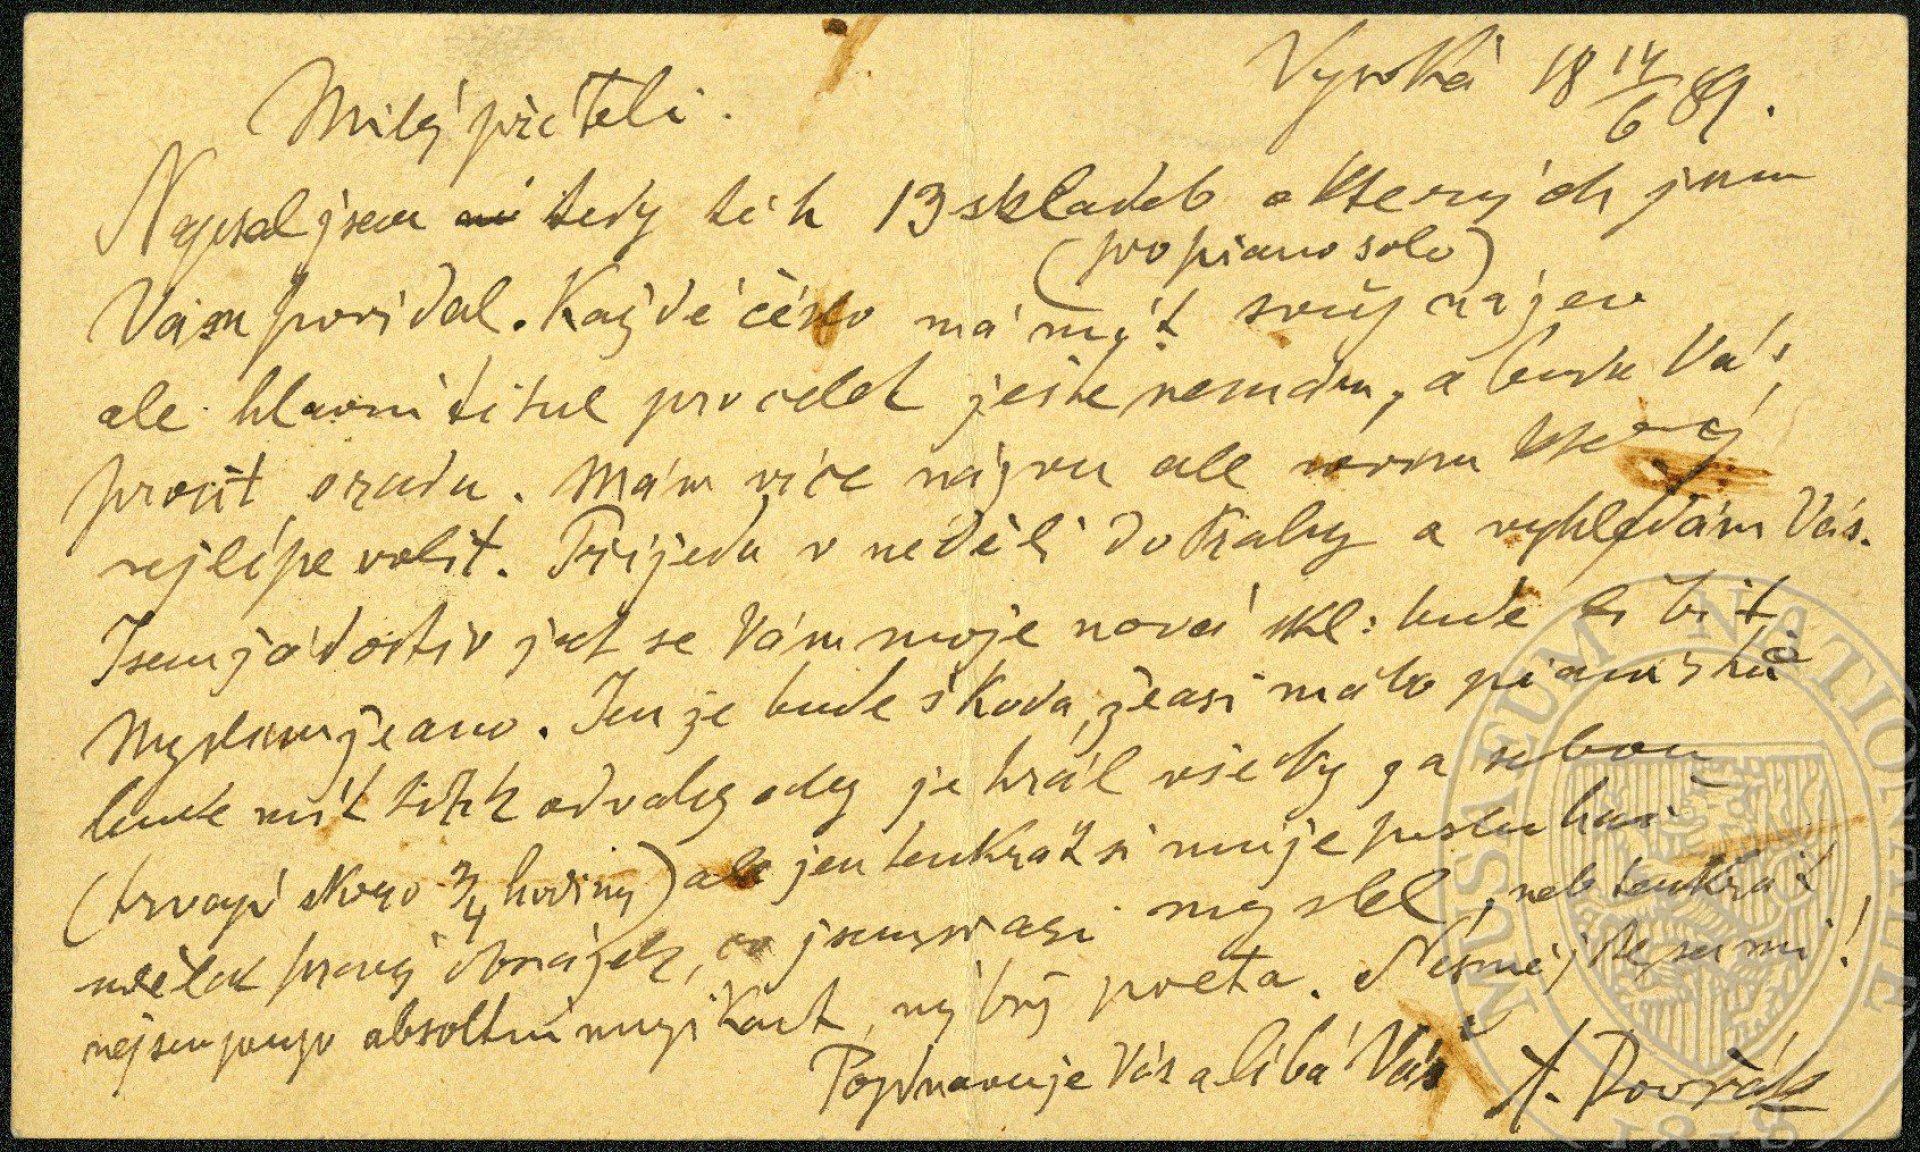 Vysoká 18 14/6 89.
Milý příteli.
Napsal jsem tedy těch 13 skladeb o kterých jsem
(pro piano solo)
Vám povídal. Každé číslo má mýt svůj název
ale hlavní titul pro celek ještě nemám, a budu Vás
prosit o radu. Mám více názvu ale nevím který
nejlépe volit. Přijedu v neděli do Prahy a vyhledám Vás.
Jsem žádostiv jak se Vám moje nová skl: bude líbit,
Myslím že ano. Jen že bude škoda, že asi málo pianistů
bude mít tolik odvahy aby je hrál všecky za sebou
(trvají skoro 3/4 hodiny) ale jen tenkrát si může posluchač
udělat pravý obrázek, co jsem si asi myslel, neb tenkrát
nejsem pouze absoltní muzikant, nýbrž poeta. Nesmějte se mi!
Pozdravuje Vás a líbá Váš A. Dvořák
MUSAEUM NATIONALE
1818